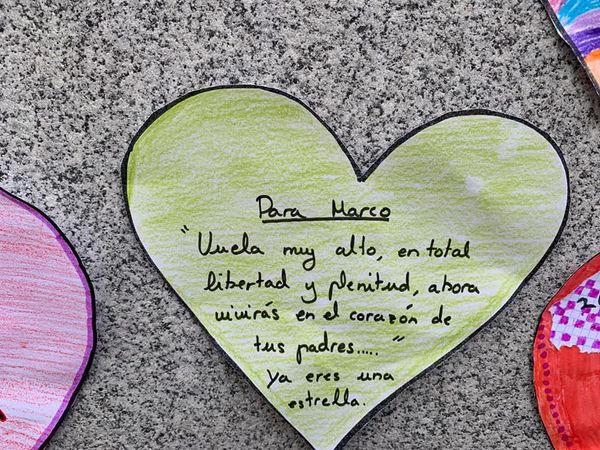 Para Marco
"Vuela muy alto, en total
libertad y plenitud, ahora
vivirás en el corazón de
tus padres....."
ya eres una
estrella.